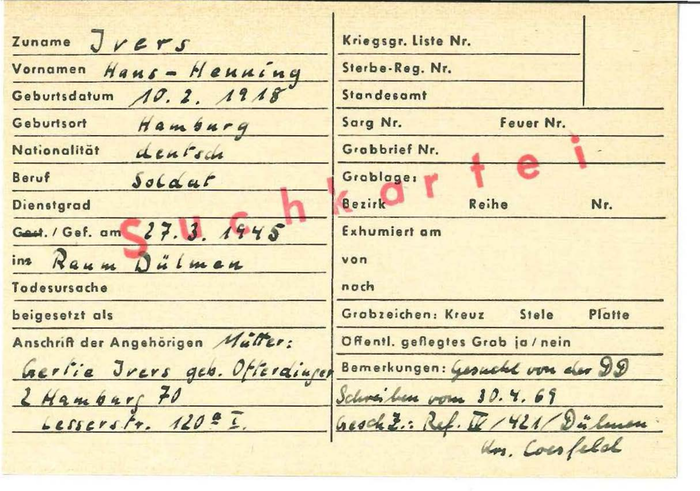 Zuname Ivers
Vornamen Hans-Henning
Geburtsdatum 10.2.1918
Geburtsort Hamburg
Nationalität deutsch
Beruf Soldat
Dienstgrad
Gest./Gef. am 27.3.1945
im Raum Dülmen
Todesursache
beigesetzt als
Anschrift der Angehörigen Mutter:
Gertie Ivers geb. Ofterdinger
2 Hamburg 70
Lesserstr. 120a I.
Kriegsgr. Liste Nr.
Sterbe-Reg. Nr.
Standesamt
Sarg Nr. Feuer Nr.
Grabbrief Nr.
Grablage:
Bezirk Reihe Nr.
Exhumiert am
von
nach
Grabzeichen: Kreuz Stele Platte
Öffentl. gepflegtes Grab ja/nein
Bemerkungen: Gesucht von der DD
Schreiben vom 30.4.69
Gesch Z.: Ref. IV/421/Dülmen
Krs. Coesfeld
Suchkartei